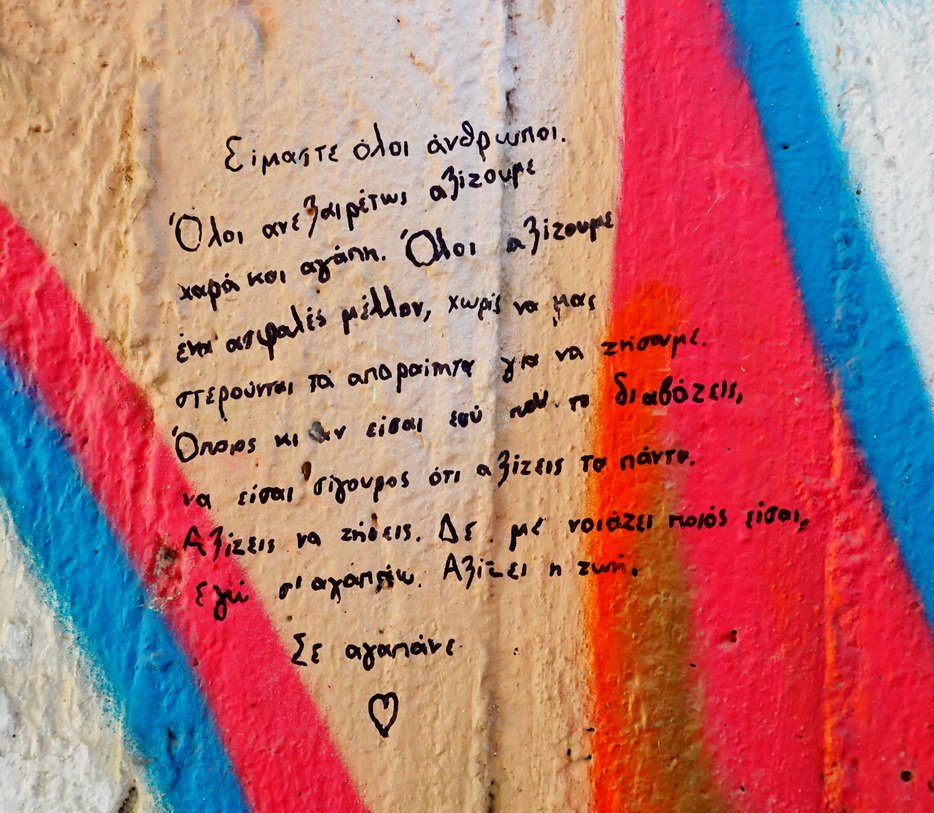 Είμαστε όλοι άνθρωποι.
Όλοι ανεξαιρέτως αξίζουμε
χαρά και αγάπη. Όλοι αξίζουμε
ένα ασφαλές μέλλον, χωρίς να μας
στερούνται τα απαραίτητα για να ζήσουμε.
Όποιος κι αν είσαι εσύ που το διαβάζεις,
να είσαι σίγουρος ότι αξίζεις τα πάντα.
Αξίζεις να ζήσεις. Δε με νοιάζει ποιός είσαι,
εγώ σ' αγαπάω. Αξίζει η ζωή.
Σε αγαπάνε